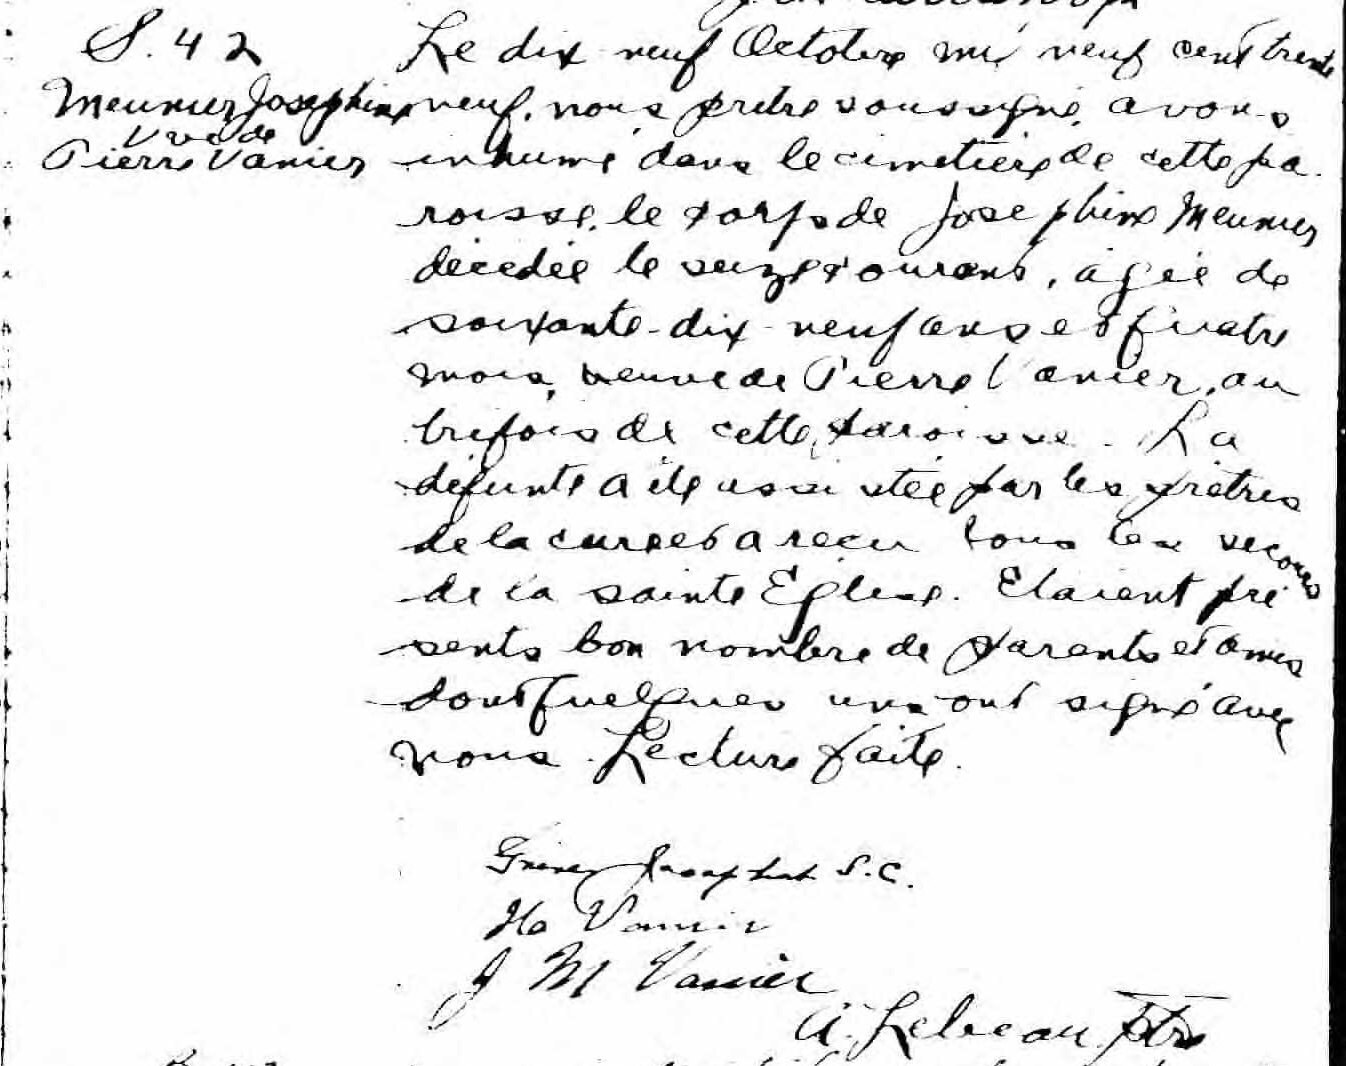 S. 42
Meunier Josephine
Vve de
Pierre Vanier
Le dix neuf Octobre mil neuf cent trente
neuf, nous prêtre soussigné, avons
inhumé dans le cimetière de cette pa
roisse, le corps de Josephine Meunier
décédée le seize courant, agée de
soixante-dix-neuf ans et quatre
mois, veuve de Pierre Vanier, au
trefois de cette paroisse. La
défunte a été assistée par les prêtres
de la cure et a reçu tous les secours
de la sainte Eglise. Etaient pré
sents bon nombre de parents et amis
dont quelques uns ont signé avec
nous. Lecture faite.
Josaphat S.C.
Ho Vanier
J M Vanier
A. Lebeau Ptre